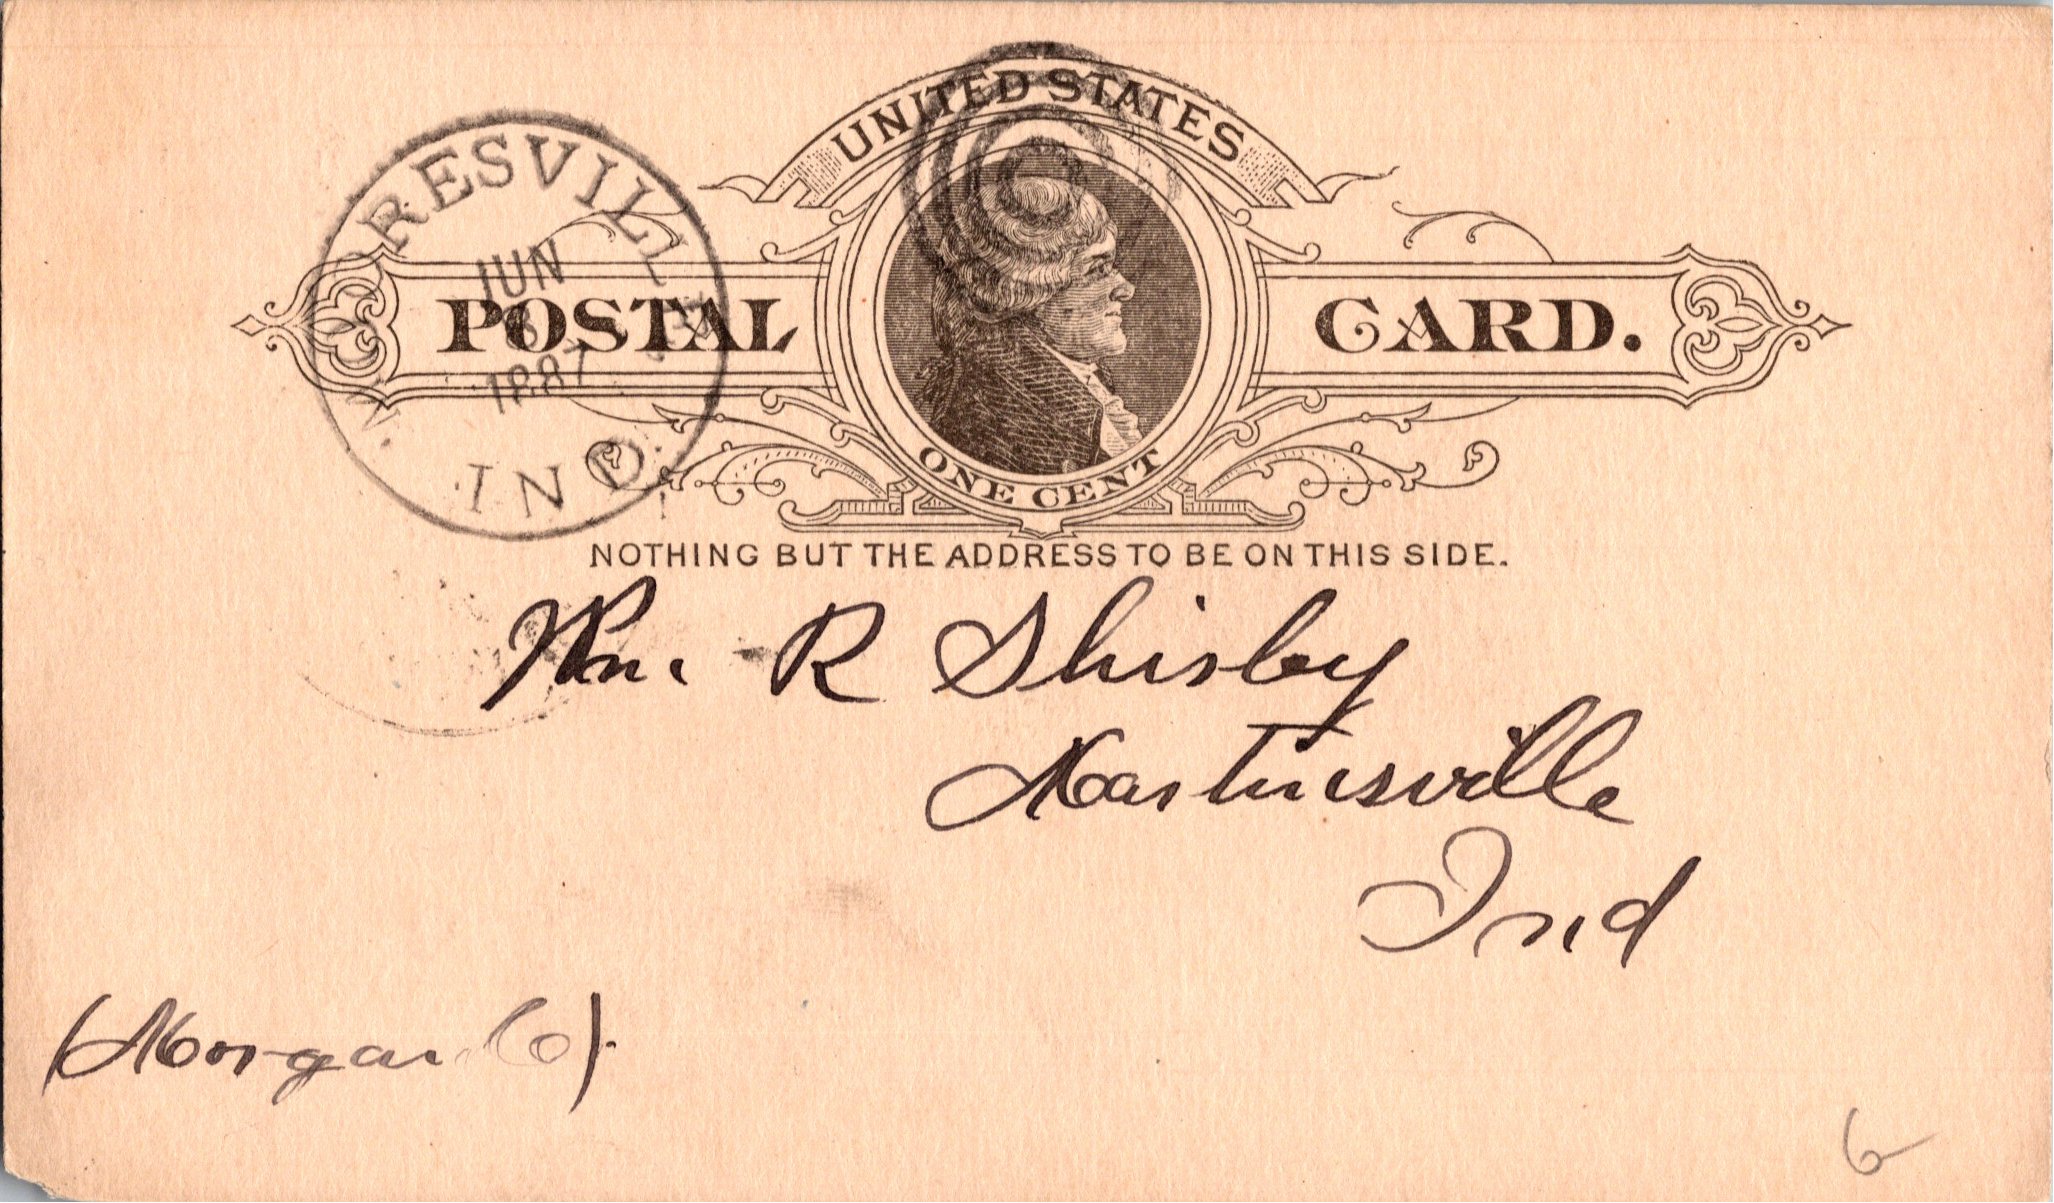 UNITED STATES
POSTAL CARD.
ONE CENT
NOTHING BUT THE ADDRESS TO BE ON THIS SIDE.
MOORESVILLE
JUN
8
1887
IND.
Wm. R Shirley
Martinsville
Ind
(Morgan Co).
6